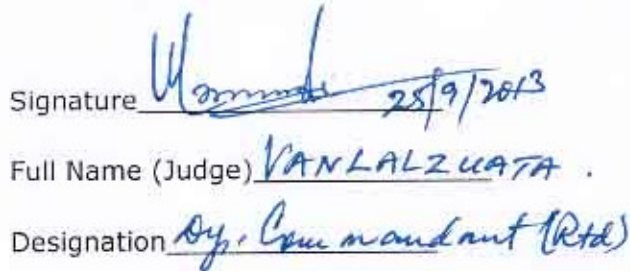 Signature 25/9/2013
Full Name (Judge) VANLALZUATA .
Designation Dy. Commandant (Rtd)